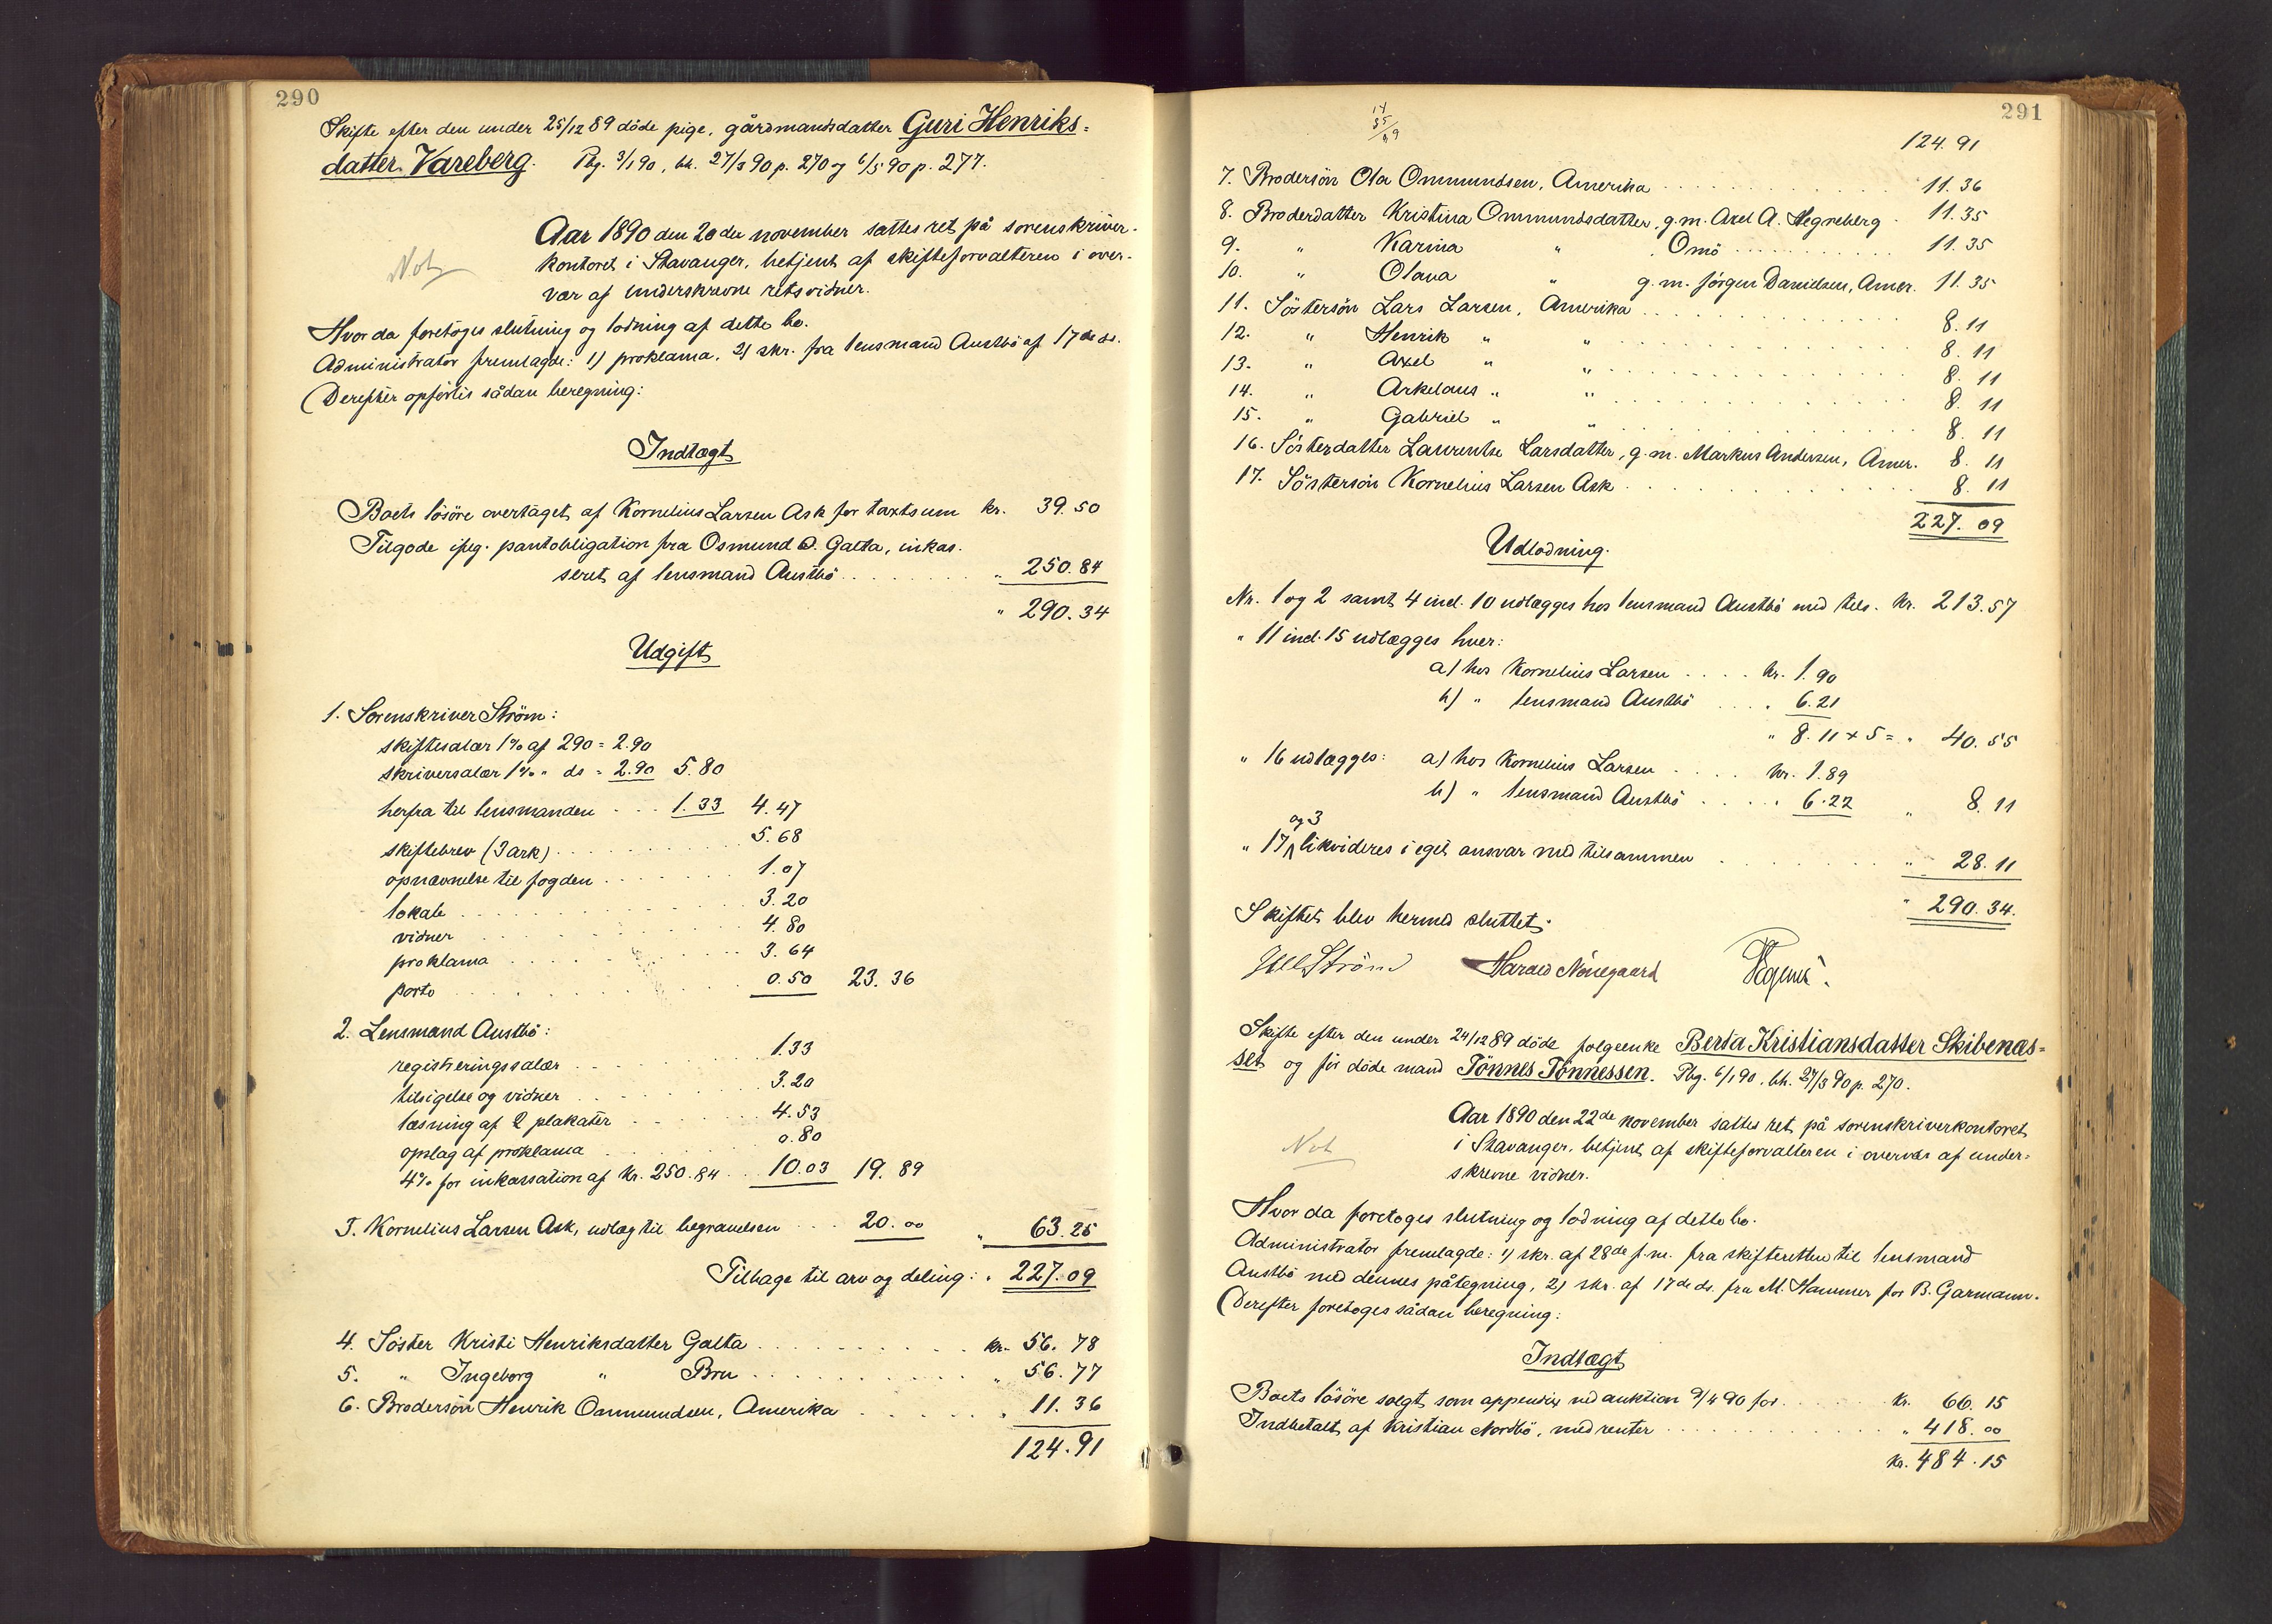 290
Skifte efter den under 25/12 89 döde pige, gårdmandsdatter Guri Henriks=
datter Vareberg. Pbg. 3/1 90, bh. 27/3 90 p. 270 og 6/5 90 p. 277.
Not
Aar 1890 den 20de november sattes ret på sorenskriver-
kontoret i Stavanger, betjent af skifteforvalteren i over-
vær af underskrevne retsvidner.
Hvor da foretoges slutning og lodning af dette bo.
Administrator fremlagde: 1) proklama, 2) skr. fra lensmand Austbö af 17de ds.
Derefter opförtes sådan beregning:
Indtægt
Boets lösöre overtaget af Kornelius Larsen Ask for taxtsum kr. 39.50
Tilgode ifölg. pantobligation fra Osmund O. Galta, inkas-
seret af lensmand Austbö . . . . . . . . " 250.84
" 290.34
Udgift
1. Sorenskriver Ström:
skiftesalær 1% af 290 = 2.90
skriversalær 1% " do = 2.90 5.80
herfra til lensmanden . . . 1.33 4.47
skiftebrev (3 ark) . . . . . . . 5.68
opnævnelse til fogden . . . . . . 1.07
lokale . . . . . . . . . . 3.20
vidner . . . . . . . . . . 4.80
proklama . . . . . . . . . 3.64
porto . . . . . . . . . . 0.50 23.36
2. Lensmand Austbö:
registreringssalær . . . . . . 1.33
tilsigelse og vidner . . . . . . 3.20
læsning af 2 plakater . . . . . 4.53
opslag af proklama . . . . . . 0.80
4% for inkassation af kr. 250.84 . . 10.03 19.89
3. Kornelius Larsen Ask, udlæg til begravelsen . . . 20.00 " 63.25
Tilbage til arv og deling: " 227.09
4. Söster Kristi Henriksdatter Galta . . . . . . . . . kr. 56.78
5. " Ingeborg " Bru . . . . . . . . . . " 56.77
6. Brodersön Henrik Ommundsen, Amerika . . . . . . . " 11.36
124.91
291
124.91
7. Brodersön Ola Ommundsen, Amerika . . . . . . . . . 11.36
8. Broderdatter Kristina Ommundsdatter, g.m. Axel A. Hegreberg . 11.35
9. " Karina " Omö . . . . . . . . . 11.35
10. " Olava " g.m. Jörgen Danielsen, Amer. 11.35
11. Söstersön Lars Larsen, Amerika . . . . . . . . . . 8.11
12. " Henrik " " . . . . . . . . . . 8.11
13. " Axel " " . . . . . . . . . . 8.11
14. " Arkelaus " " . . . . . . . . . . 8.11
15. " Gabriel " " . . . . . . . . . . 8.11
16. Sösterdatter Laurentse Larsdatter, g.m. Markus Andersen, Amer. 8.11
17. Söstersön Kornelius Larsen Ask . . . . . . . . . . 8.11
227.09
Udlodning.
Nr. 1 og 2 samt 4 incl. 10 udlægges hos lensmand Austbö med tils. kr. 213.57
" 11 incl. 15 udlægges hver:
a) hos Kornelius Larsen . . . . kr. 1.90
b) " lensmand Austbö . . . " 6.21
" 8.11 x 5 = " 40.55
" 16 udlægges: a) hos Kornelius Larsen . . . . kr. 1.89
b) " lensmand Austbö . . . . " 6.22 " 8.11
og 3
" 17 likvideres i eget ansvar med tilsammen . . . . . . " 28.11
" 290.34.
Skiftet blev hermed sluttet.
Ström Harald Nörregaard
Skifte efter den under 24/12 89 döde folgeenke Berta Kristiansdatter Skibenæs=
set og för döde mand Tönnes Tönnessen. Pbg. 6/1 90, bh. 27/3 90 p. 270.
Not
Aar 1890 den 22de november sattes ret på sorenskriverkontoret
i Stavanger, betjent af skifteforvalteren i overvær af under-
skrevne vidner.
Hvor da foretoges slutning og lodning af dette bo.
Administrator fremlagde: 1) skr. af 28de f.m. fra skifteretten til lensmand
Austbö med dennes påtegning, 2) skr. af 17de ds. fra M. Hammer for B. Garmann.
Derefter foretoges sådan beregning:
Indtægt
Boets lösöre solgt som appendix ved auktion 9/4 90 for . . . . . kr. 66.15
Indbetalt af Kristian Nordbö, med renter . . . . . . . . . " 418.00
kr. 484.15